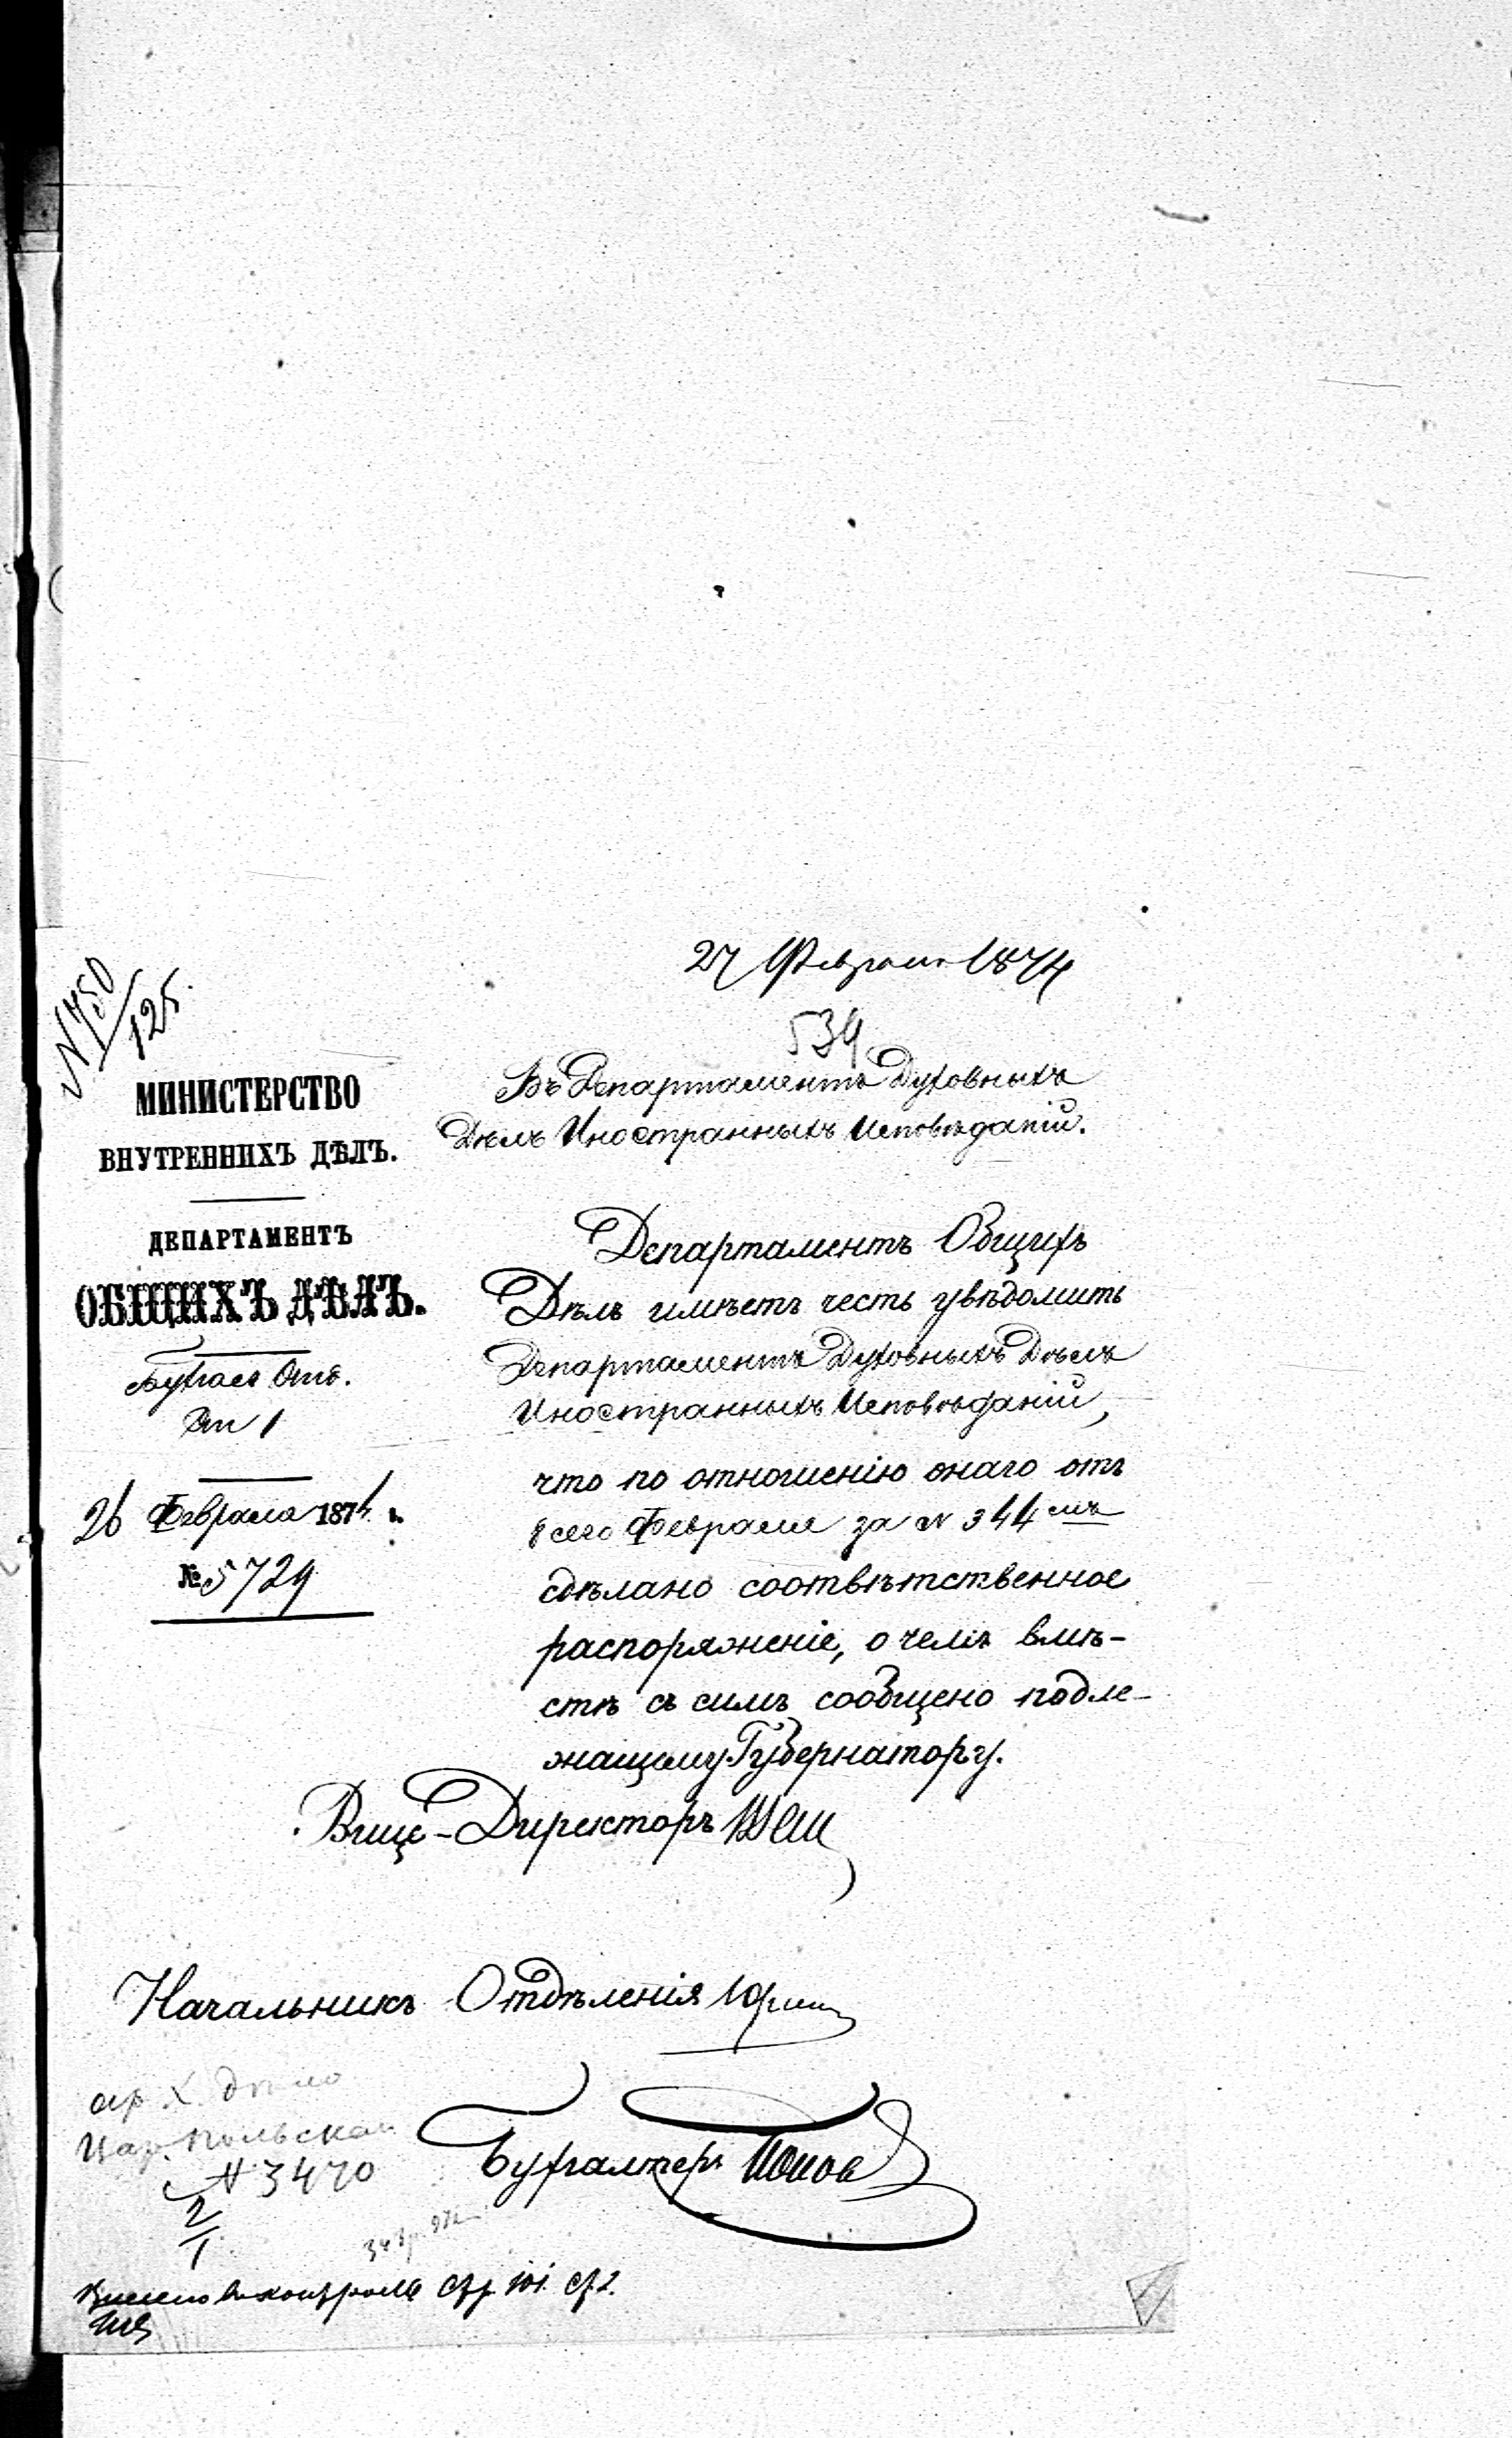 27 Февраля 1874
539
№ 750/125.
МИНИСТЕРСТВО
ВНУТРЕННИХЪ ДѢЛЪ.
ДЕПАРТАМЕНТЪ
ОБЩИХЪ ДѢЛЪ.
Отд.
Ст 1
26 Февраля 1874 г.
№ 5729
Въ Департаментъ Духовныхъ
Дѣлъ Иностранныхъ Исповѣданій.
Департаментъ Общихъ
Дѣлъ имѣетъ честь увѣдомить
Департаментъ Духовныхъ Дѣлъ
Иностранныхъ Исповѣданій,
что по отношенію онаго отъ
8 сего Февраля за № 344 мъ
сдѣлано соотвѣтственное
распоряженіе, о чемъ вмѣ-
стѣ съ симъ сообщено подле-
жащему Губернатору.
Вице-Директоръ
Начальникъ Отдѣленія
Бухгалтеръ Поповъ
дѣло
Цар. Польскаго
№ 3470
2/1
стр 101. ст 2.